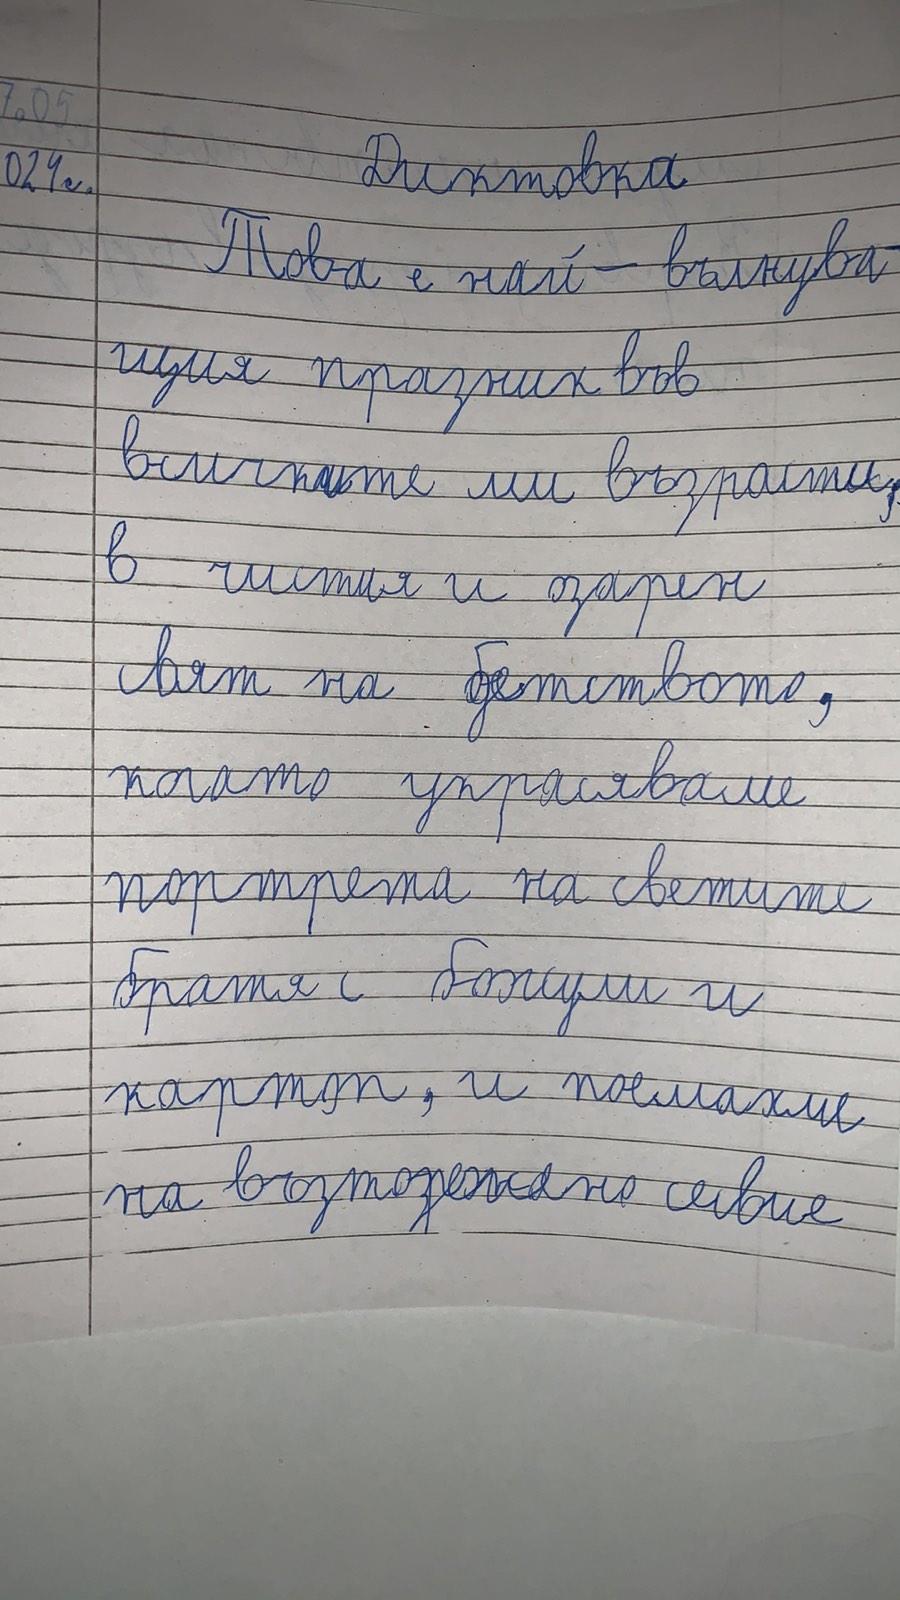 7.05
024г.
Диктовка
Това е най-вълнува-
щия празник във
всичките ми възрасти,
в чистия и озарен
свят на детството,
когато украсяваме
портрета на светите
братя с божури и
картон, и поемахме
на